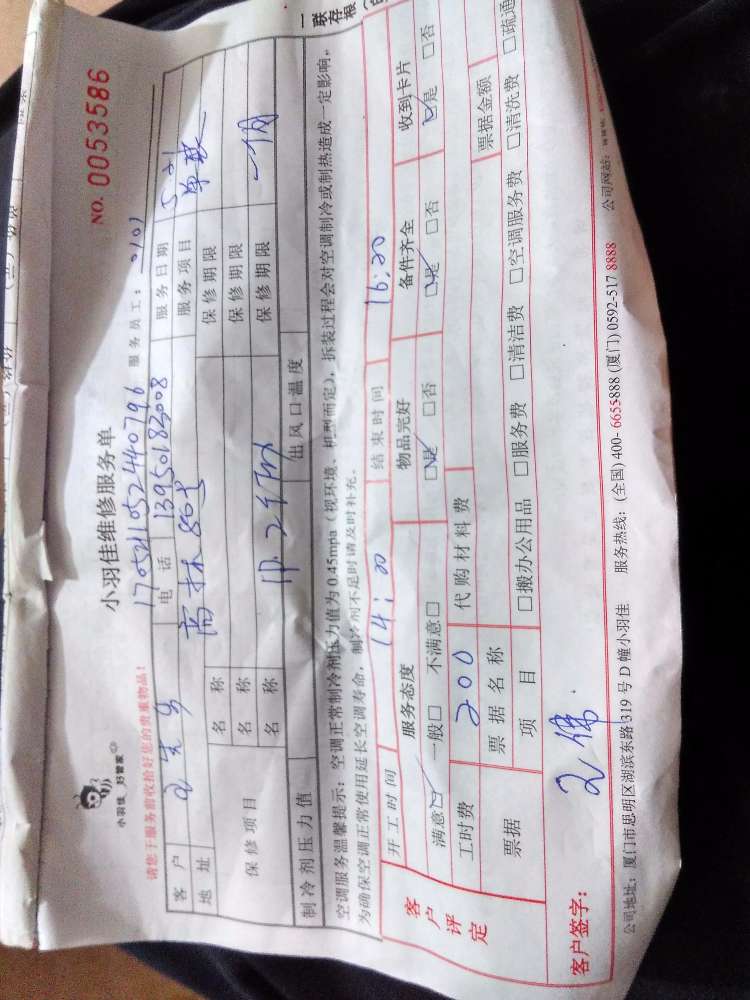 一联存根
小羽佳 好管家
小羽佳维修服务单
NO. 0053586
请您于服务前收拾好您的贵重物品!
170521052440796 服务员工: 0101
客户 王先生 电话 13950183008 服务日期 5.21
地址 服务项目 单联
保修项目 名称 保修期限
名称 保修期限
名称 保修期限 一个月
制冷剂压力值 出风口温度
空调服务温馨提示: 空调正常制冷剂压力值为0.45mpa (视环境、机型而定), 拆装过程会对空调制冷或制热造成一定影响,
为确保空调正常使用延长空调寿命, 制冷剂不足时请及时补充。
客户评定 开工时间 14:00 结束时间 16:20
服务态度 物品完好 备件齐全 收到卡片
满意☑ 一般□ 不满意□ ☑是 □否 ☑是 □否 ☑是 □否
工时费 200 代购材料费
票据 票据名称 票据金额
项目 □搬办公用品 □服务费 □清洁费 □空调服务费 □清洗费 □疏通
客户签字: 王伟
公司地址: 厦门市思明区湖滨东路319号D幢小羽佳 服务热线: (全国) 400-6655-888 (厦门) 0592-517 8888 公司网站: